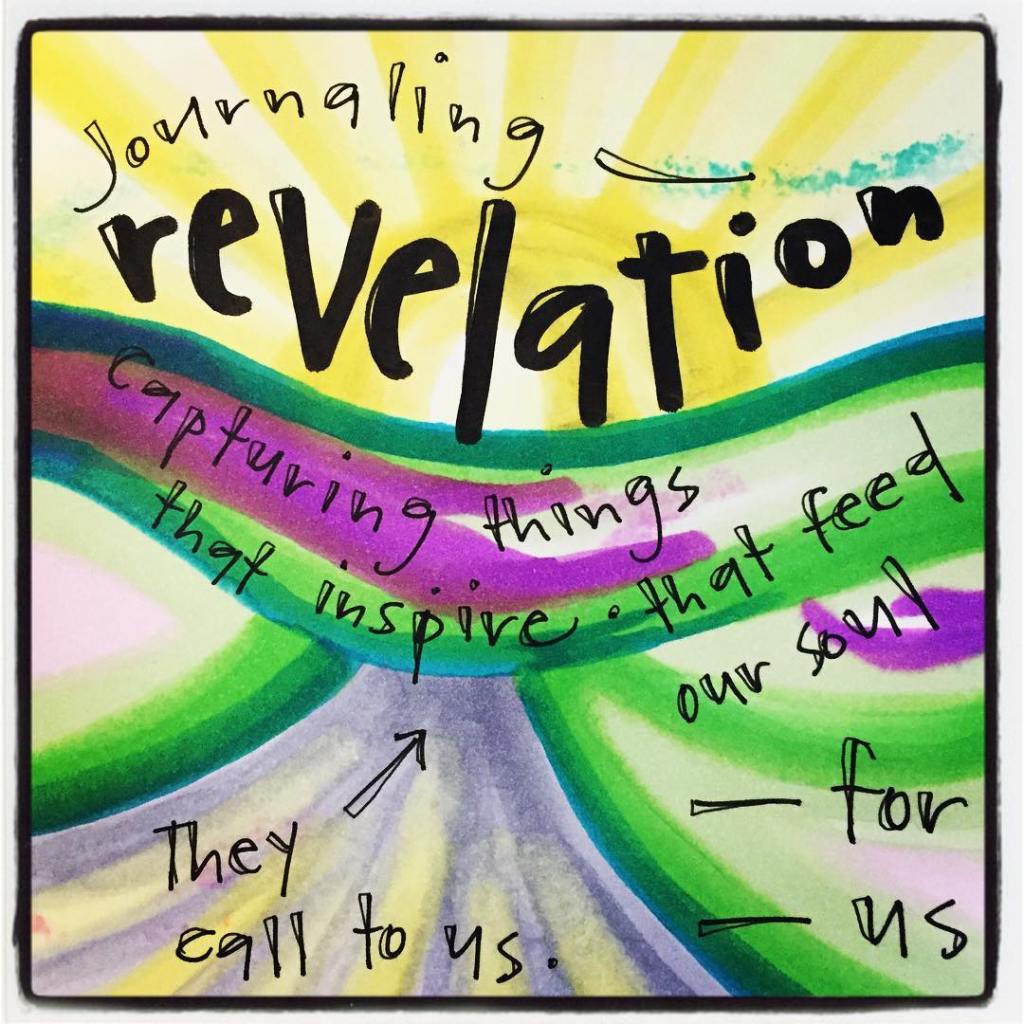 Journaling —
revelation
Capturing things
that inspire · that feed
our soul
— for
— us
They
call to us.